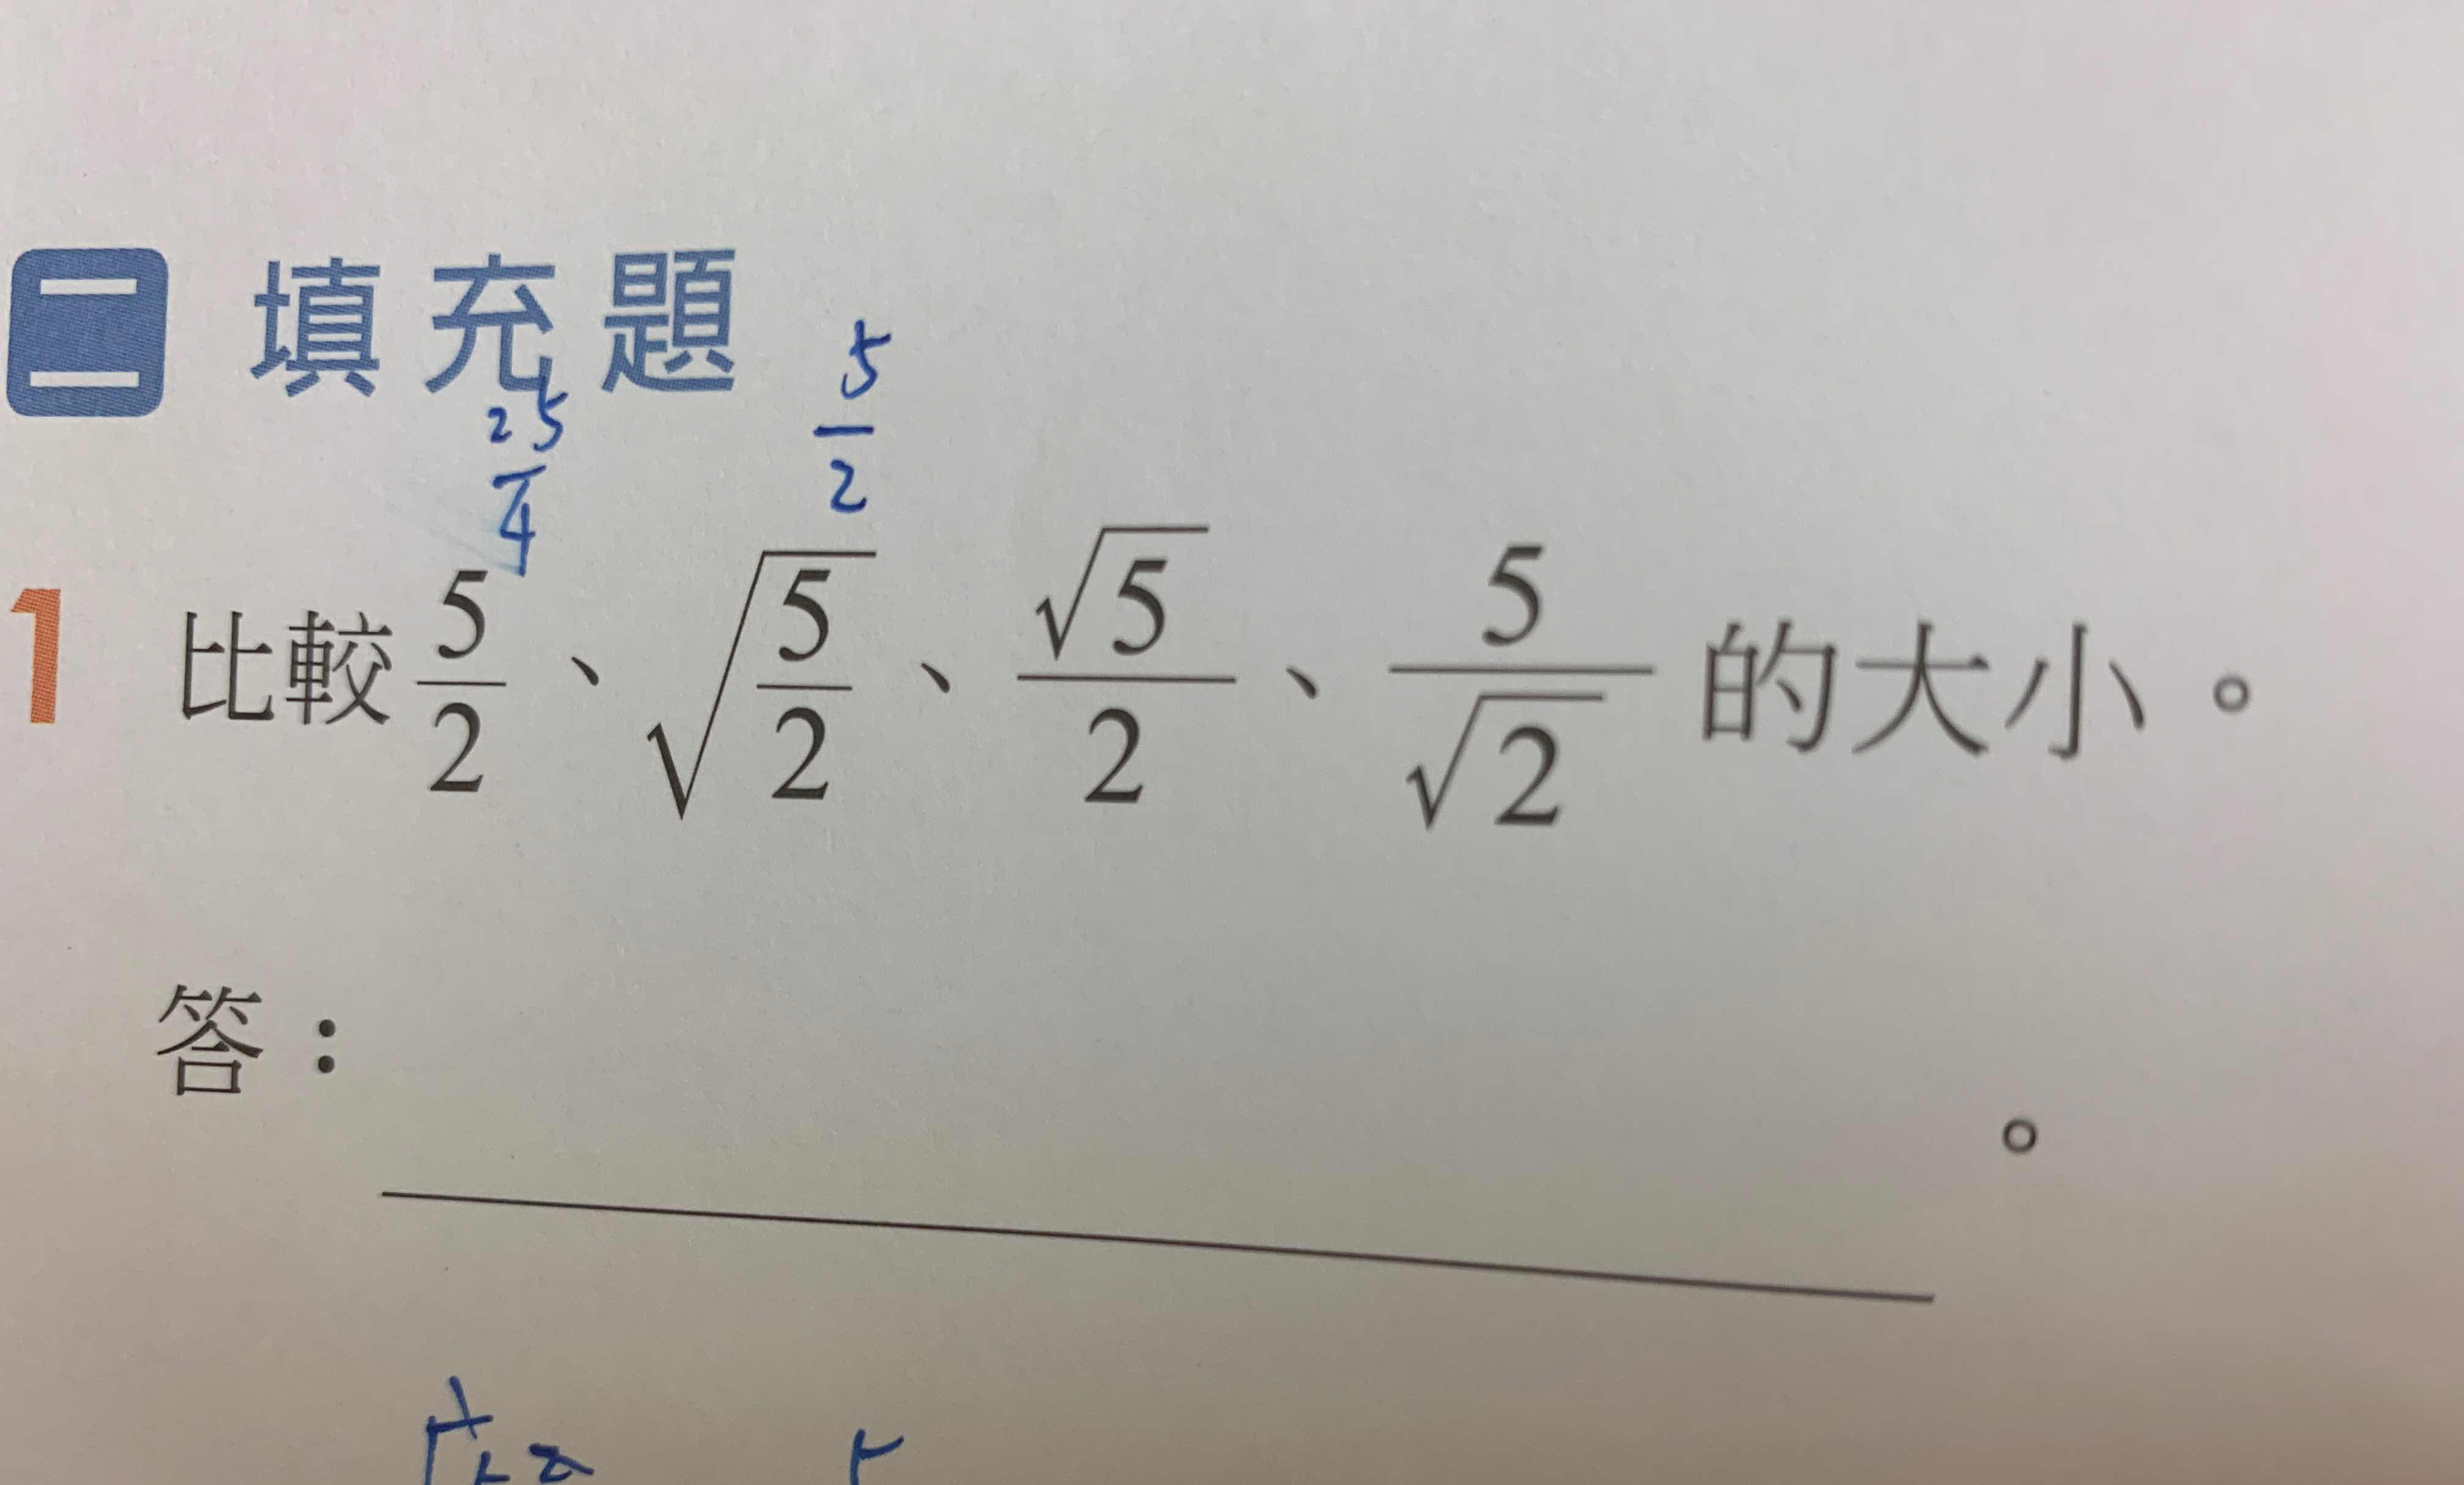 二 填充題
25/4 5/2
1 比較 5/2、√(5/2)、√5/2、5/√2 的大小。
答：。